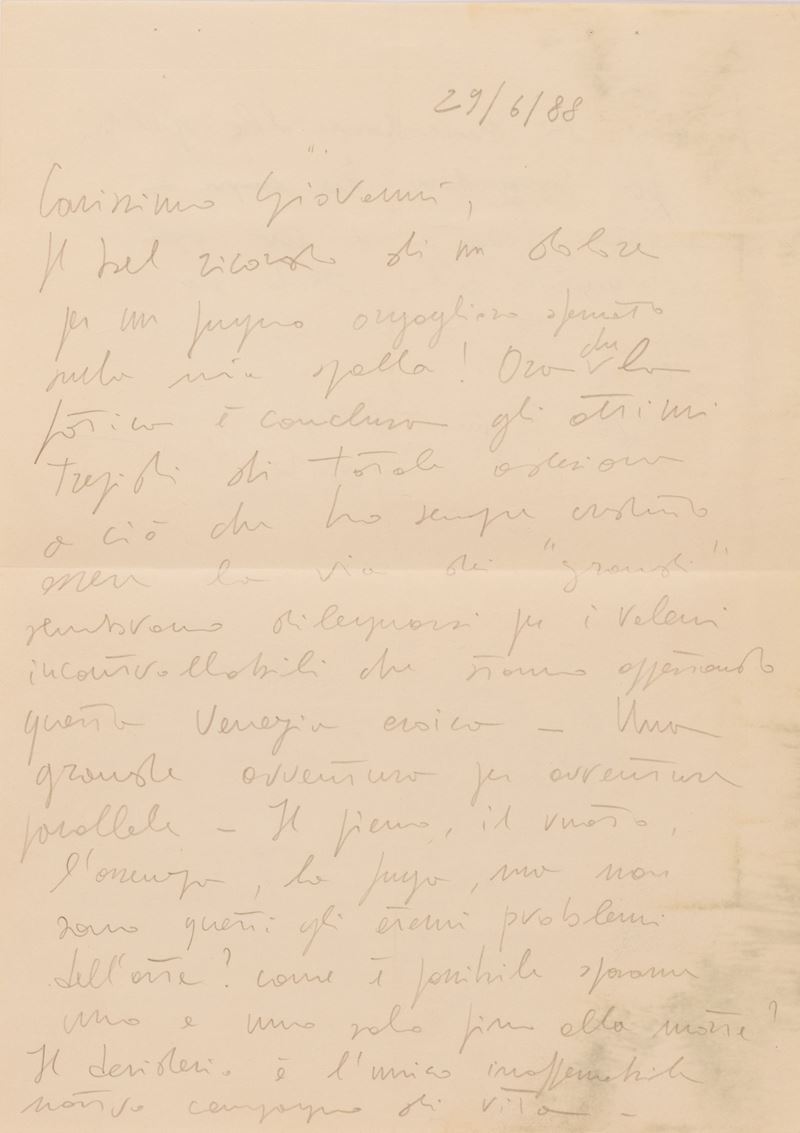 29/6/88
Carissimo Giovanni,
Il bel ricordo di un dolore
per un pugno orgoglioso sferrato
sulla mia spalla! Ora che la
fatica è conclusa gli attimi
trepidi di totale adesione
a ciò che ho sempre creduto
essere la via dei "grandi"
sembrano dileguarsi per i veleni
incontrollabili che stanno appestando
questa Venezia eroica – Una
grande avventura per avventure
parallele – Il pieno, il vuoto,
l'assenza, la fuga, ma non
sono questi gli eterni problemi
dell'arte? come è possibile sposarne
uno e uno solo fino alla morte?
Il desiderio è l'unico inafferrabile
nativo compagno di vita –